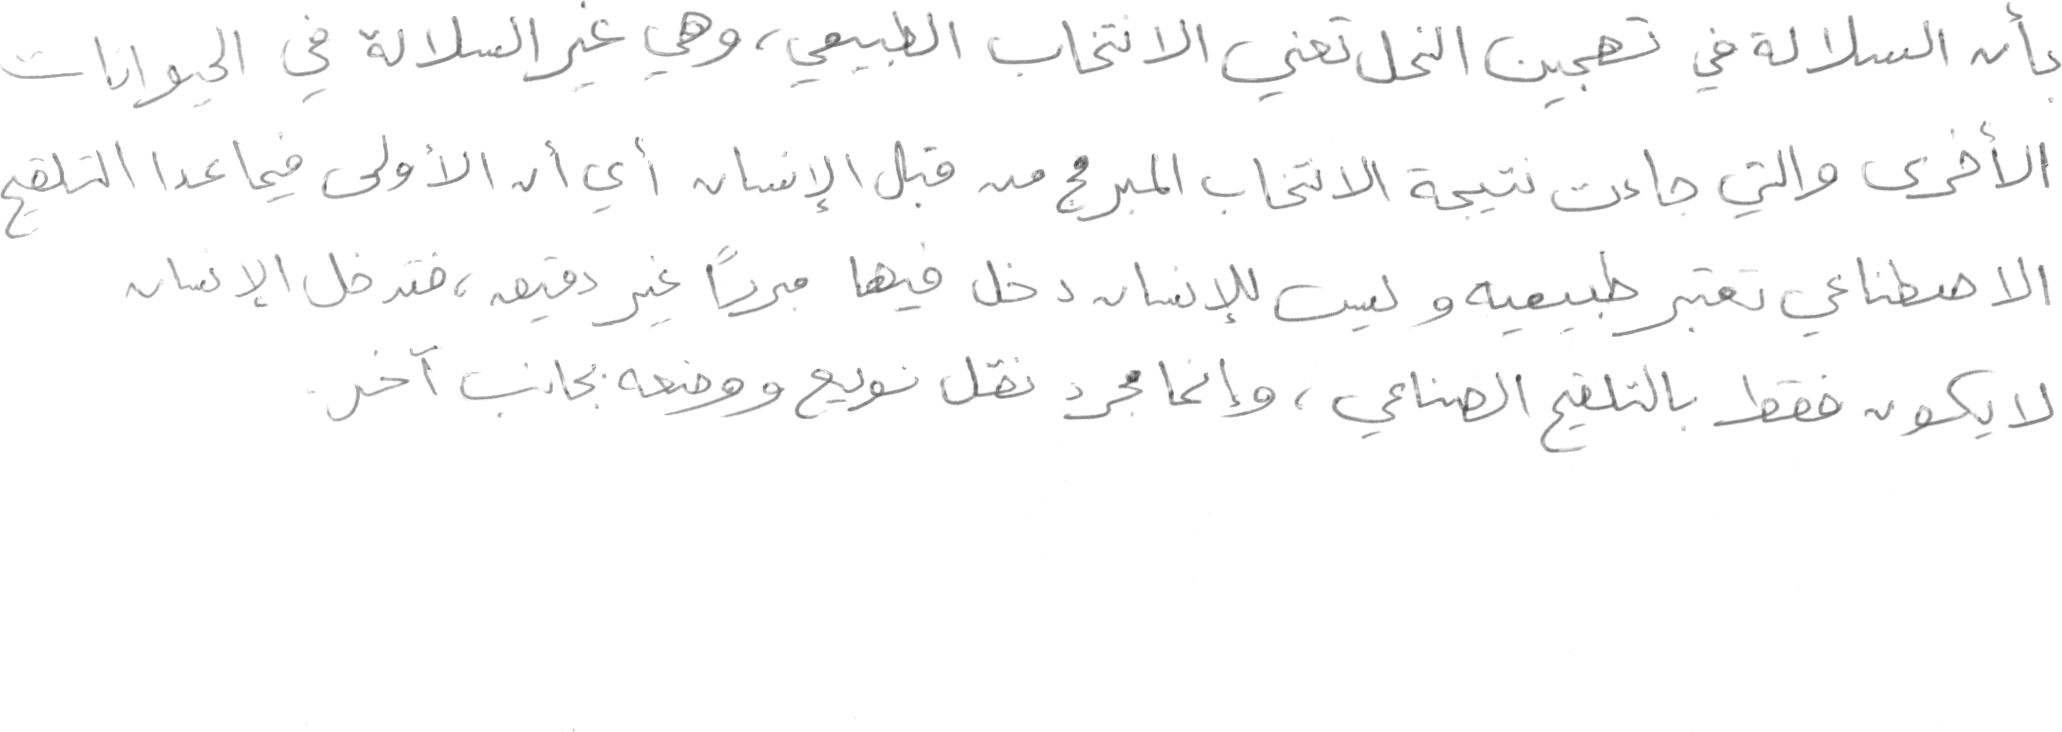 بأن السلالة في تهجين النحل تعني الانتخاب الطبيعي، وهي غير السلالة في الحيوانات
الأخرى والتي جاءت نتيجة الانتخاب المبرمج من قبل الإنسان أي أن الأولى فيما عدا التلقيح
الاصطناعي تعتبر طبيعيه وليس للإنسان دخل فيها مبررًا غير دقيق، فتدخل الإنسان
لا يكون فقط بالتلقيح الصناعي، وإنما مجرد نقل نويع ووضعه بجانب آخر.